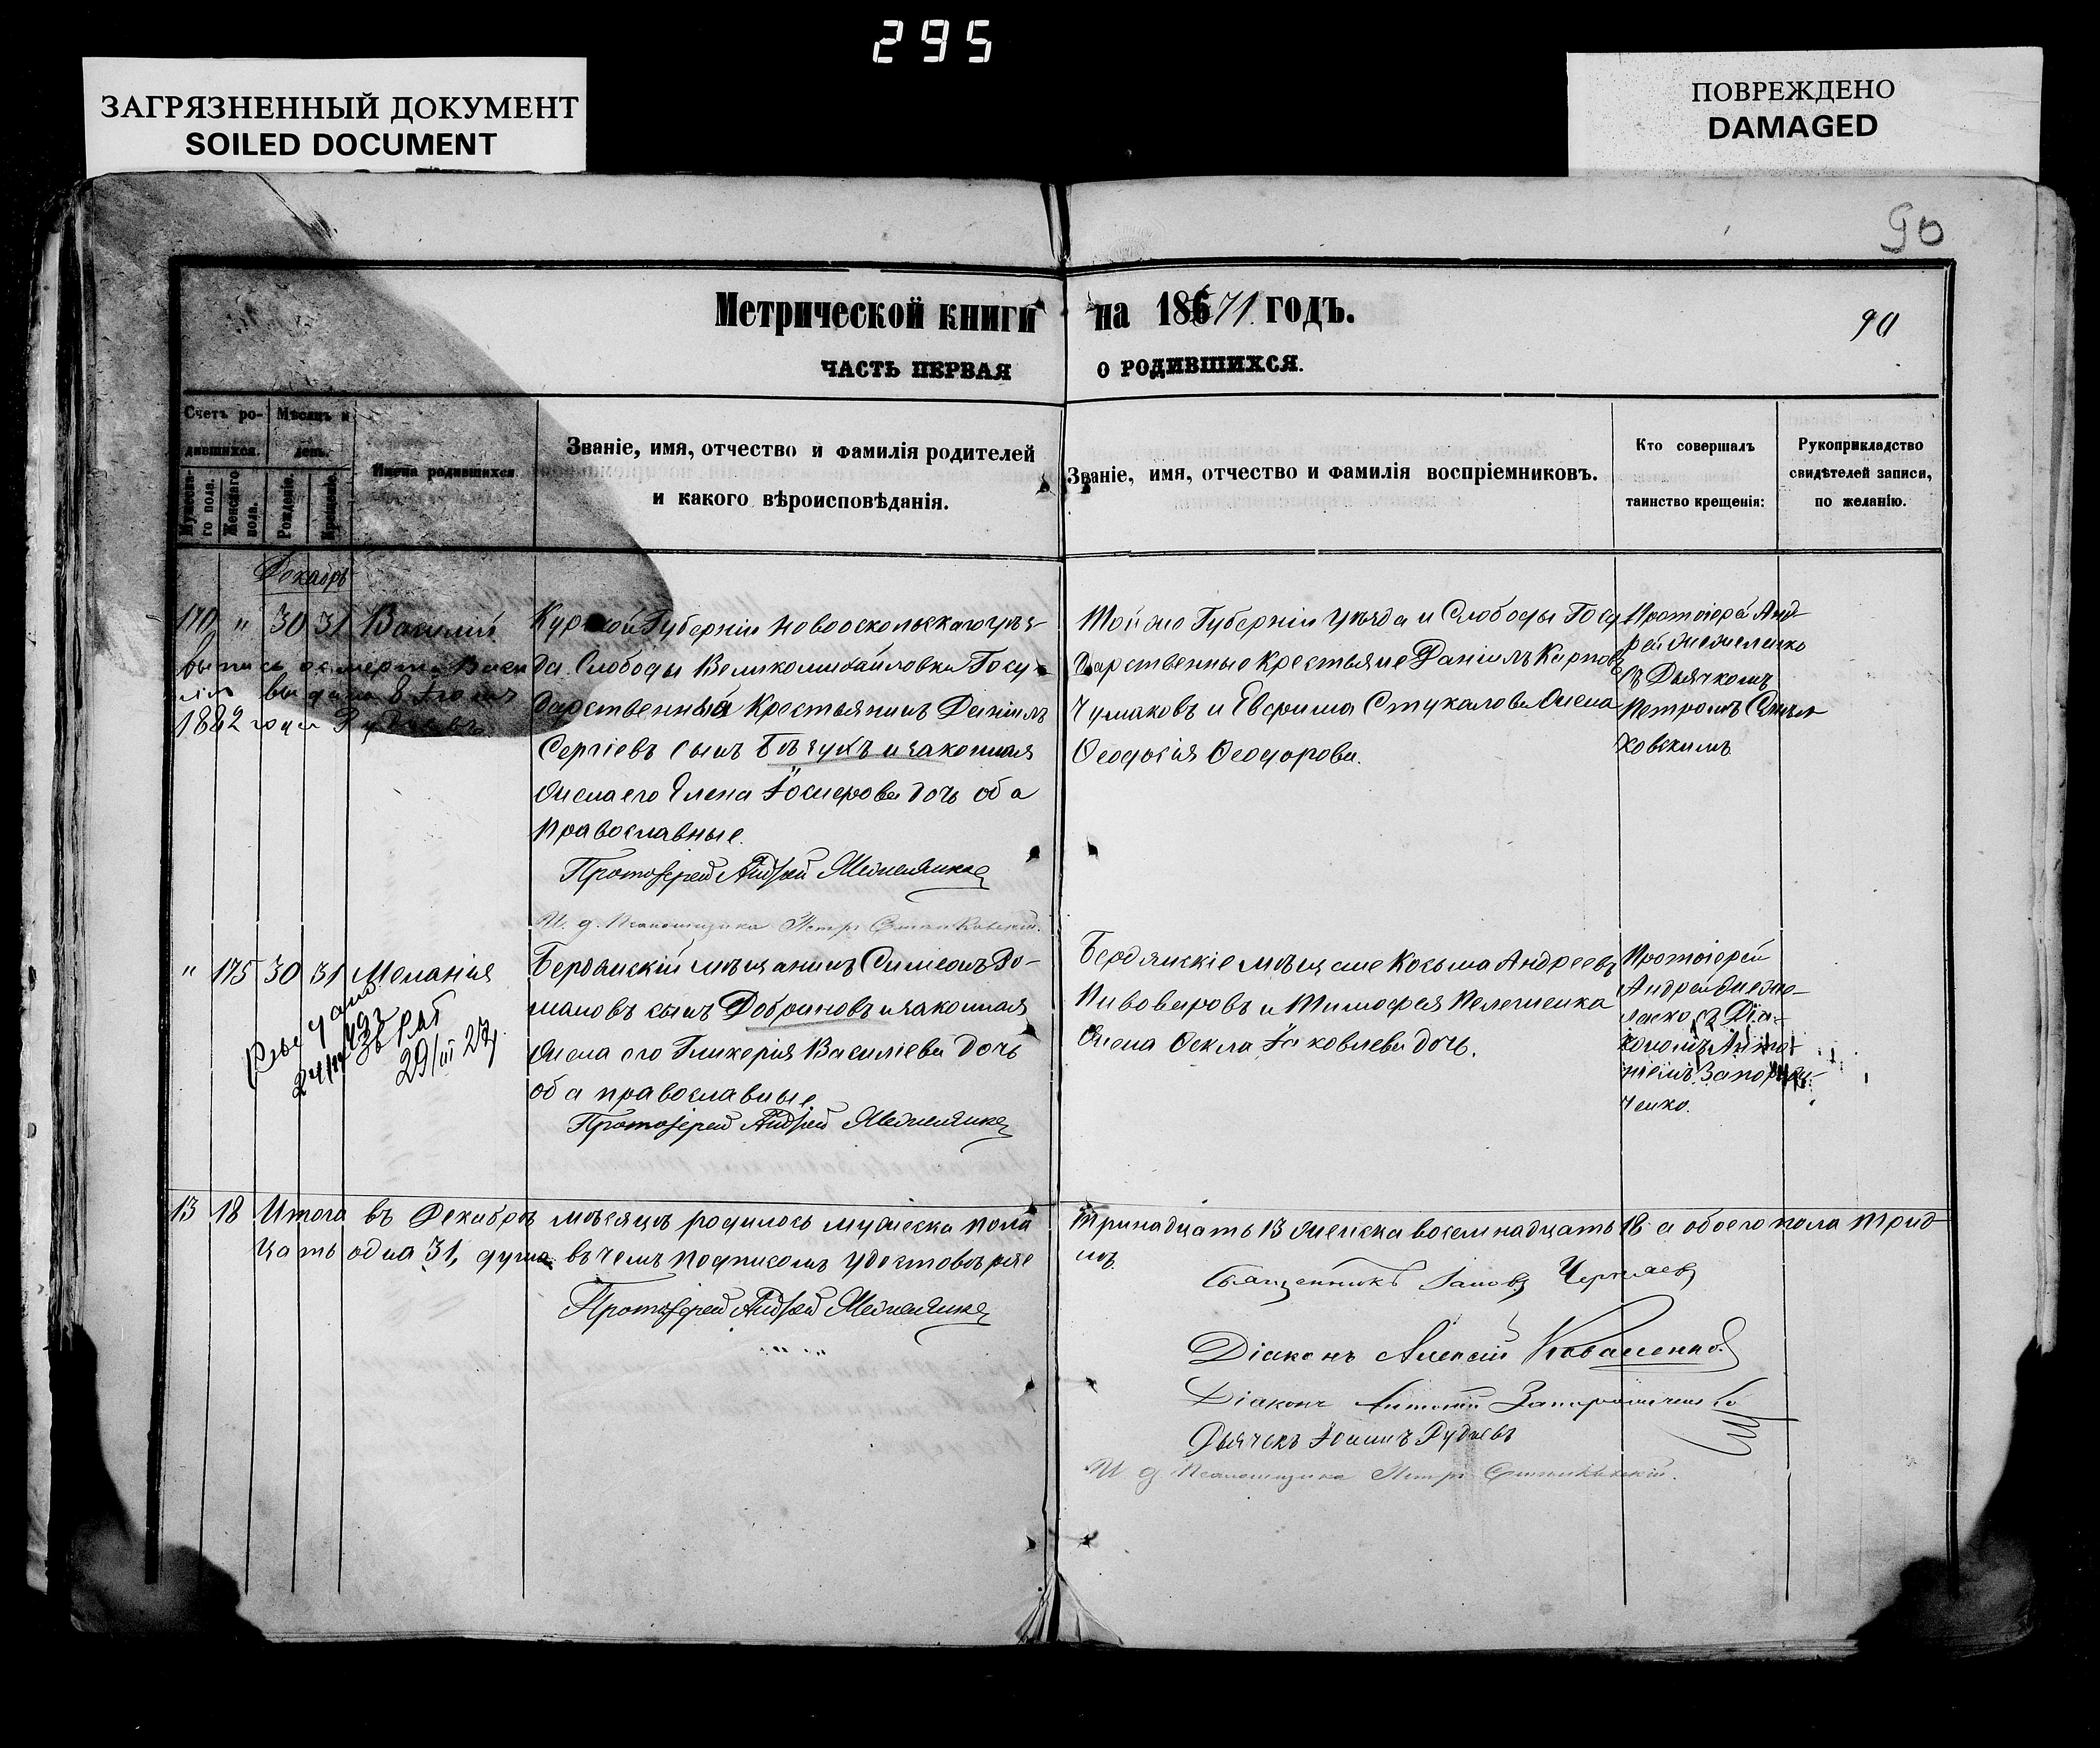 295
ЗАГРЯЗНЕННЫЙ ДОКУМЕНТ
SOILED DOCUMENT
ПОВРЕЖДЕНО
DAMAGED
90
Метрической книги на 1871 годъ.
90
ЧАСТЬ ПЕРВАЯ О РОДИВШИХСЯ.
Счетъ родившихся.
Мужескаго пола.
Женскаго пола.
Мѣсяцъ и день.
Рожденіе.
Крещеніе.
Имена родившихся.
Званіе, имя, отчество и фамилія родителей
и какого вѣроисповѣданія.
Званіе, имя, отчество и фамилія воспріемниковъ.
Кто совершалъ
таинство крещенія:
Рукоприкладство
свидѣтелей записи,
по желанію.
Декабрь
170 " 30 31 Василій
Курской Губерніи Новооскольскаго уѣз-
да Слободы Великомихайловки Госу-
дарственный Крестьянинъ Даніилъ
Сергіевъ сынъ и законная
жена его Елена дочь оба
православные.
Протоіерей Андрей
И. д. Псаломщика Петръ
выпись о смерти Васи
лія выдана 8
1882 года Рудневъ
Той же Губерніи уѣзда и Слободы Госу
дарственные Крестьяне Даніилъ Карповъ
Чумаковъ и Стукалова жена
Ѳеодосія Ѳеодорова.
Протоіерей Анд-
рей
съ Дьячкомъ
Петромъ
" 175 30 31 Меланія
Бердянскій мѣщанинъ Симеонъ Ро-
мановъ сынъ Добриновъ и законная
жена его Гликерія Василіева дочь
оба православные
Протоіерей Андрей
29/III 27
Бердянскіе мѣщане Косьма Андреевъ
Пивоваровъ и Тимофея Пелешенка
жена Ѳекла Іаковлева дочь.
Протоіерей
Андрей
съ Діа-
кономъ Анто-
ніемъ
ченко.
13 18 Итого въ Декабрѣ мѣсяцѣ родилось мужеска пола тринадцать 13 женска восемнадцать 18 а обоего пола трид
цать одна 31, душа въ чемъ подписомъ удостовѣряе
мъ.
Протоіерей Андрей
Священникъ
Діаконъ Алексій Коваленко
Діаконъ Антоній
Дьячекъ Рудневъ
И д. Псаломщика Петръ